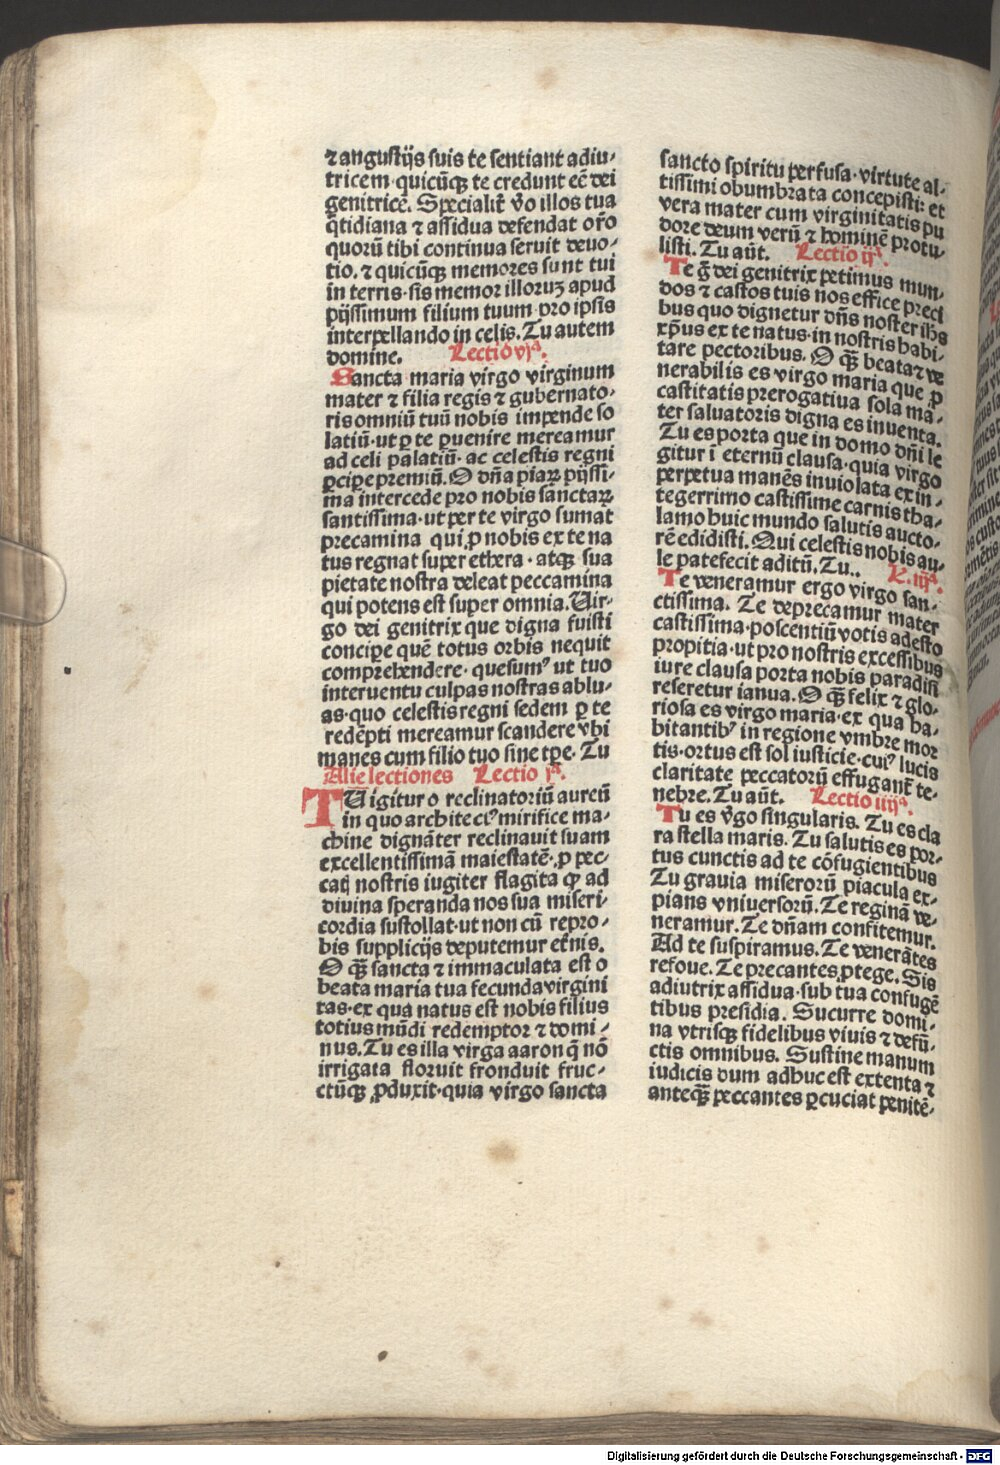 ⁊ angustijs suis te sentiant adiu-
tricem·quicūqꝫ te credunt eē dei
genitricē. Specialit̄ v̄o illos tua
q̄tidiana ⁊ assidua defendat or̄o
quorū tibi continua seruit deuo-
tio.⁊ quicūqꝫ memores sunt tui
in terris·sis memor illoruꝫ apud
pijssimum filium tuum pro ipsis
interpellando in celis. Tu autem
domine. Lectio vjᵃ.
Sancta maria virgo virginum
mater ⁊ filia regis ⁊ gubernato-
ris omniū tuū nobis impende so
latiū·ut ꝑ te ꝑuenire mereamur
ad celi palatiū· ac celestis regni
ꝑcipe premiū. O dn̄a piaꝝ pijssi-
ma intercede pro nobis sanctaꝝ
santissima·ut per te virgo sumat
precamina qui ꝓ nobis ex te na
tus regnat super ethera · atqꝫ sua
pietate nostra deleat peccamina
qui potens est super omnia. Uir-
go dei genitrix que digna fuisti
concipe quē totus orbis nequit
comprehendere· quesumꝰ ut tuo
interuentu culpas nostras ablu-
as·quo celestis regni sedem ꝑ te
redēpti mereamur scandere vbi
manes cum filio tuo sine tp̄e. Tu
Alie lectiones Lectio jᵃ.
TU igitur o reclinatoriū aureū
in quo architectꝰ mirifice ma-
chine dignāter reclinauit suam
excellentissimā maiestatē·ꝓ pec-
catꝭ nostris iugiter flagita qꝫ ad
diuina speranda nos sua miseri-
cordia sustollat·ut non cū repro-
bis supplicijs deputemur et̄nis.
O qꝫ̄ sancta ⁊ immaculata est o
beata maria tua fecunda virgini
tas·ex qua natus est nobis filius
totius mūdi redemptor ⁊ domi-
nus. Tu es illa virga aaron q̄ nō
irrigata floruit fronduit fruc-
ctūqꝫ ꝓduxit·quia virgo sancta
sancto spiritu perfusa·virtute al-
tissimi obumbrata concepisti: et
vera mater cum virginitatis pu
dore deum verū ⁊ hominē protu-
listi. Tu aūt. Lectio ijᵃ.
Te g̃ dei genitrix petimus mun-
dos ⁊ castos tuis nos effice preci
bus quo dignetur dn̄s noster ihs
xp̄us ex te natus·in nostris habi-
tare pectoribus. O qꝫ̄ beata ⁊ ve
nerabilis es virgo maria que ꝓ
castitatis prerogatiua sola ma-
ter saluatoris digna es inuenta.
Tu es porta que in domo dn̄i le
gitur ī eternū clausa·quia virgo
perpetua manēs inuiolata ex in-
tegerrimo castissime carnis tha-
lamo huic mundo salutis aucto-
rē edidisti. Qui celestis nobis au-
le patefecit aditū. Tu.. L. iijᵃ.
Te veneramur ergo virgo san-
ctissima. Te deprecamur mater
castissima·poscentiū votis adesto
propitia·ut pro nostris excessibus
iure clausa porta nobis paradisi
reseretur ianua. O qꝫ̄ felix ⁊ glo-
riosa es virgo maria·ex qua ha-
bitantibꝰ in regione vmbre mor
tis·ortus est sol iusticie·cuiꝰ lucis
claritate peccatorū effugant̄ te-
nebre. Tu aūt. Lectio iiijᵃ.
Tu es v̄go singularis. Tu es cla
ra stella maris. Tu salutis es por-
tus cunctis ad te cōfugientibus
Tu grauia miserorū piacula ex-
pians vniuersorū. Te reginā ve-
neramur. Te dn̄am confitemur.
Ad te suspiramus. Te venerātes
refoue. Te precantes ꝓtege. Sis
adiutrix assidua·sub tua confugē
tibus presidia. Sucurre domi-
na vtrisqꝫ fidelibus viuis ⁊ defū-
ctis omnibus. Sustine manum
iudicis dum adhuc est extenta ⁊
anteqꝫ̄ peccantes ꝑcuciat penitē-
Digitalisierung gefördert durch die Deutsche Forschungsgemeinschaft - DFG